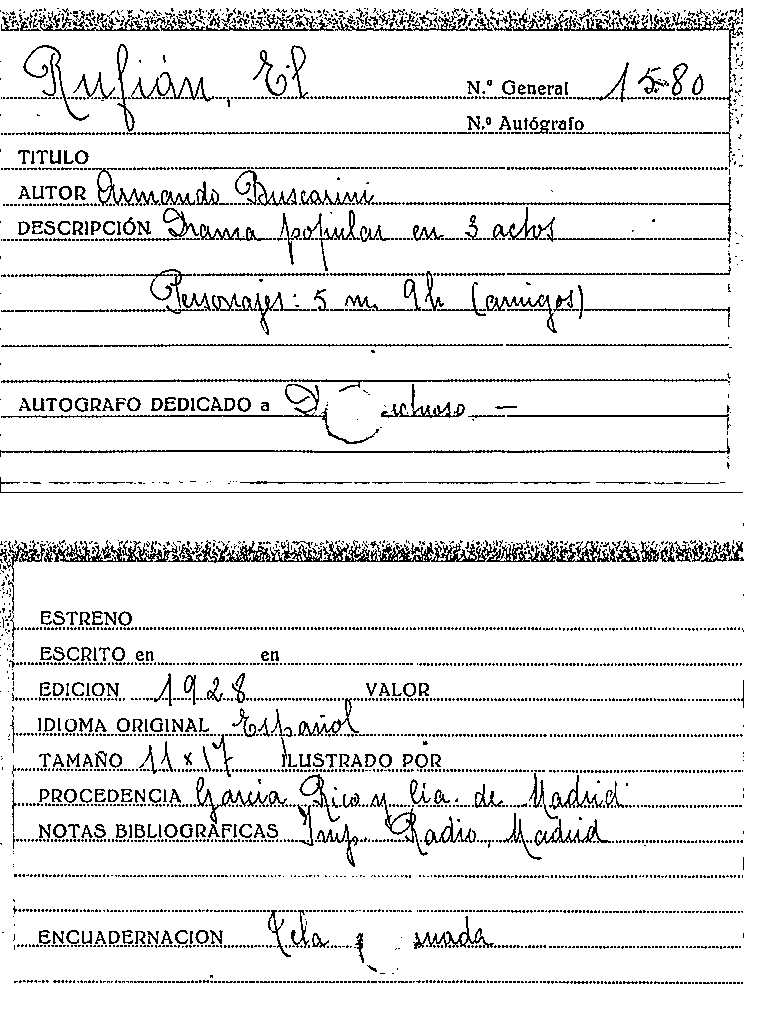 Rufián, El
N.º General 1580
N.º Autógrafo
TITULO
AUTOR Armando Buscarini
DESCRIPCIÓN Drama popular en 3 actos
Personajes: 5 m. 9 h (amigos)
AUTOGRAFO DEDICADO a
ESTRENO
ESCRITO en en
EDICION 1928 VALOR
IDIOMA ORIGINAL Español
TAMAÑO 11 x 17 ILUSTRADO POR
PROCEDENCIA García Rico y Cía. de Madrid
NOTAS BIBLIOGRAFICAS Imp. Radio, Madrid
ENCUADERNACION Tela